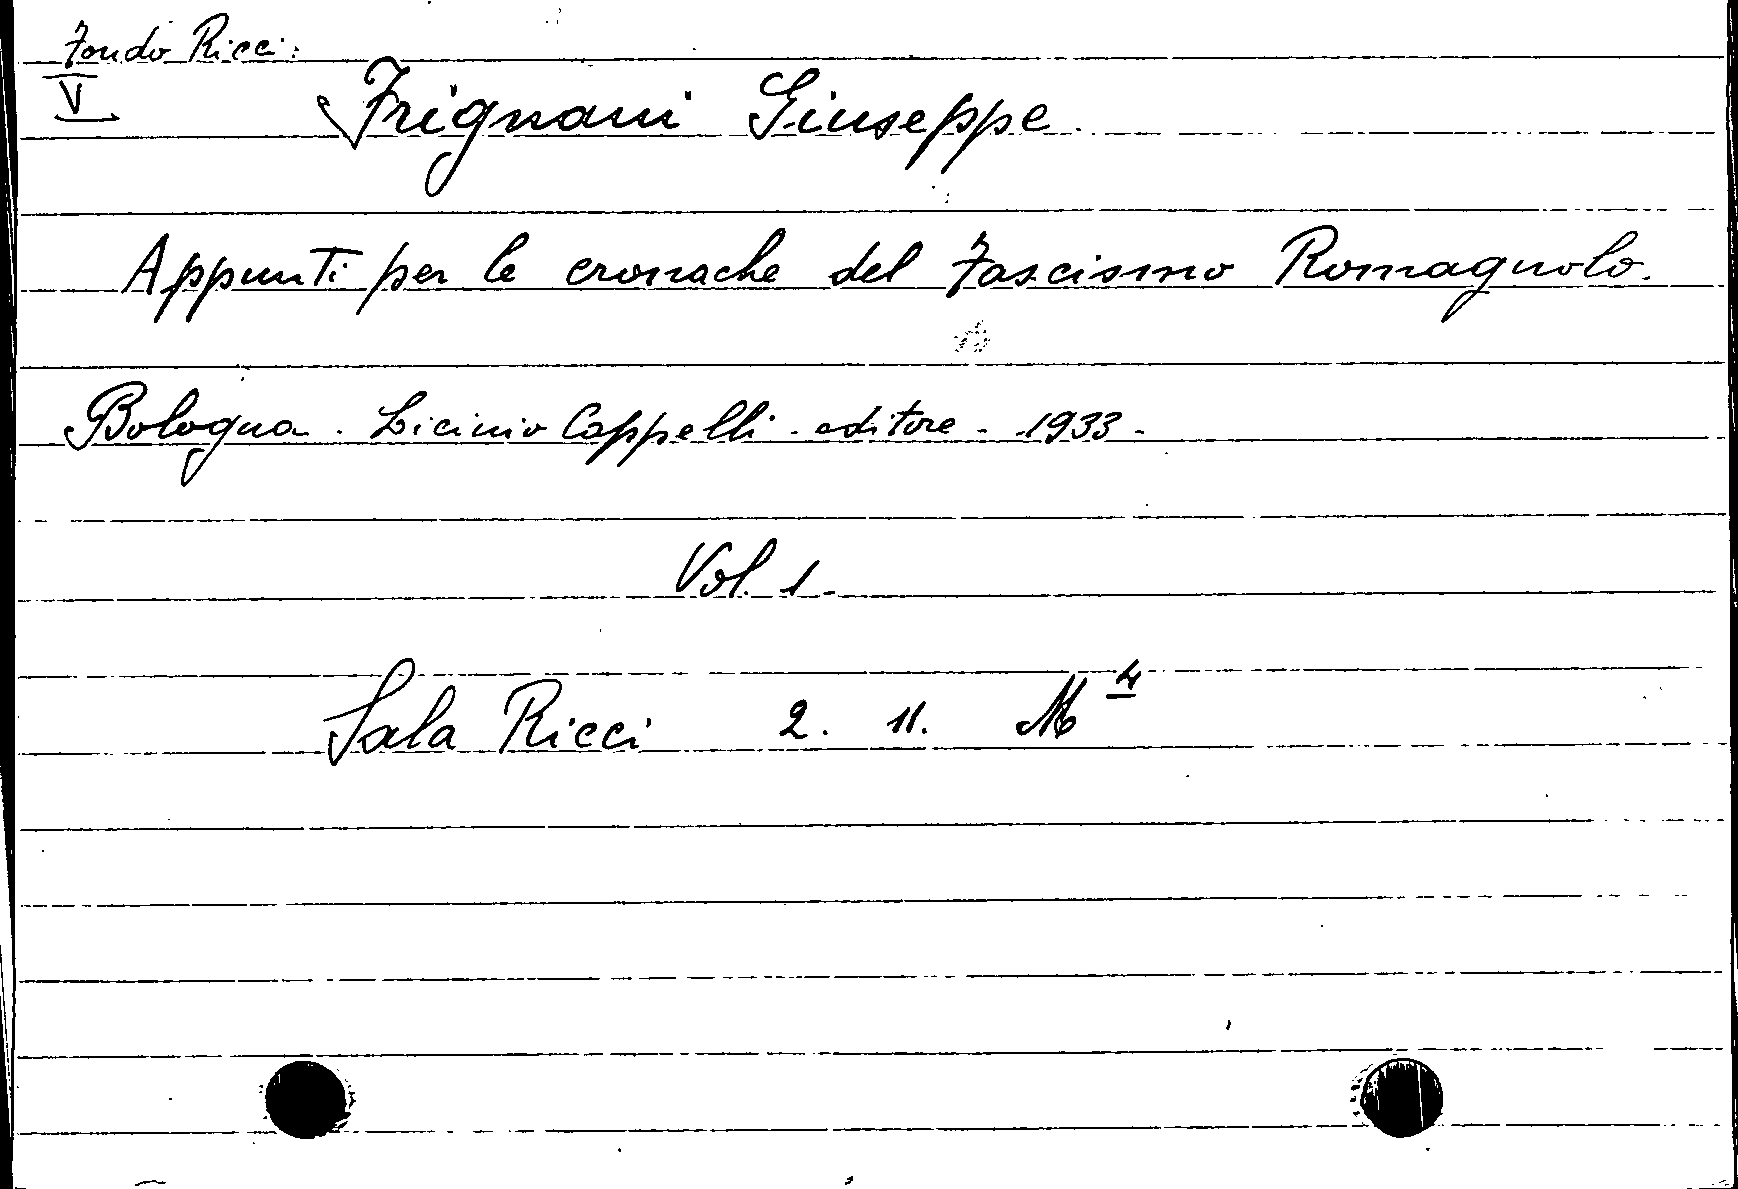 Fondo Ricci:
V
Frignani Giuseppe.
Appunti per le cronache del Fascismo Romagnolo.
Bologna - Licinio Cappelli - editore - 1933 -
Vol. 1 -
Sala Ricci 2. 11. M 4